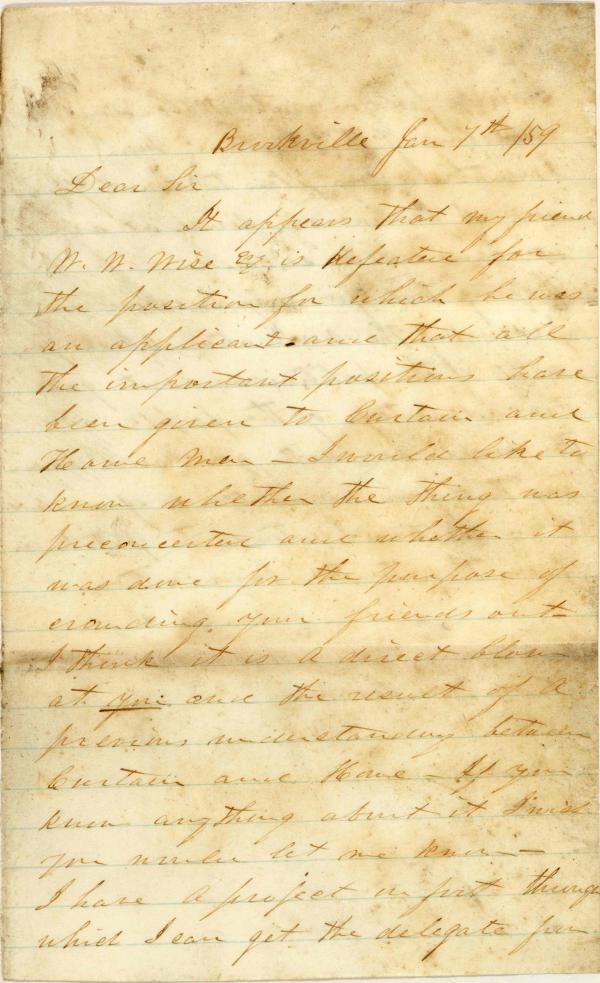 Brookville Jan 7th /59
Dear Sir
It appears that my friend
W. W. Wise Esq is defeated for
the position for which he was
an applicant and that all
the important positions have
been given to Curtain and
Howe men – I would like to
know whether the thing was
preconcerted and whether it
was done for the purpose of
crowding your friends out –
I think it is a direct blow
at you and the result of a
previous understanding between
Curtain and Howe – If you
know anything about it I wish
you would let me know –
I have a project on foot through
which I can get the delegate from